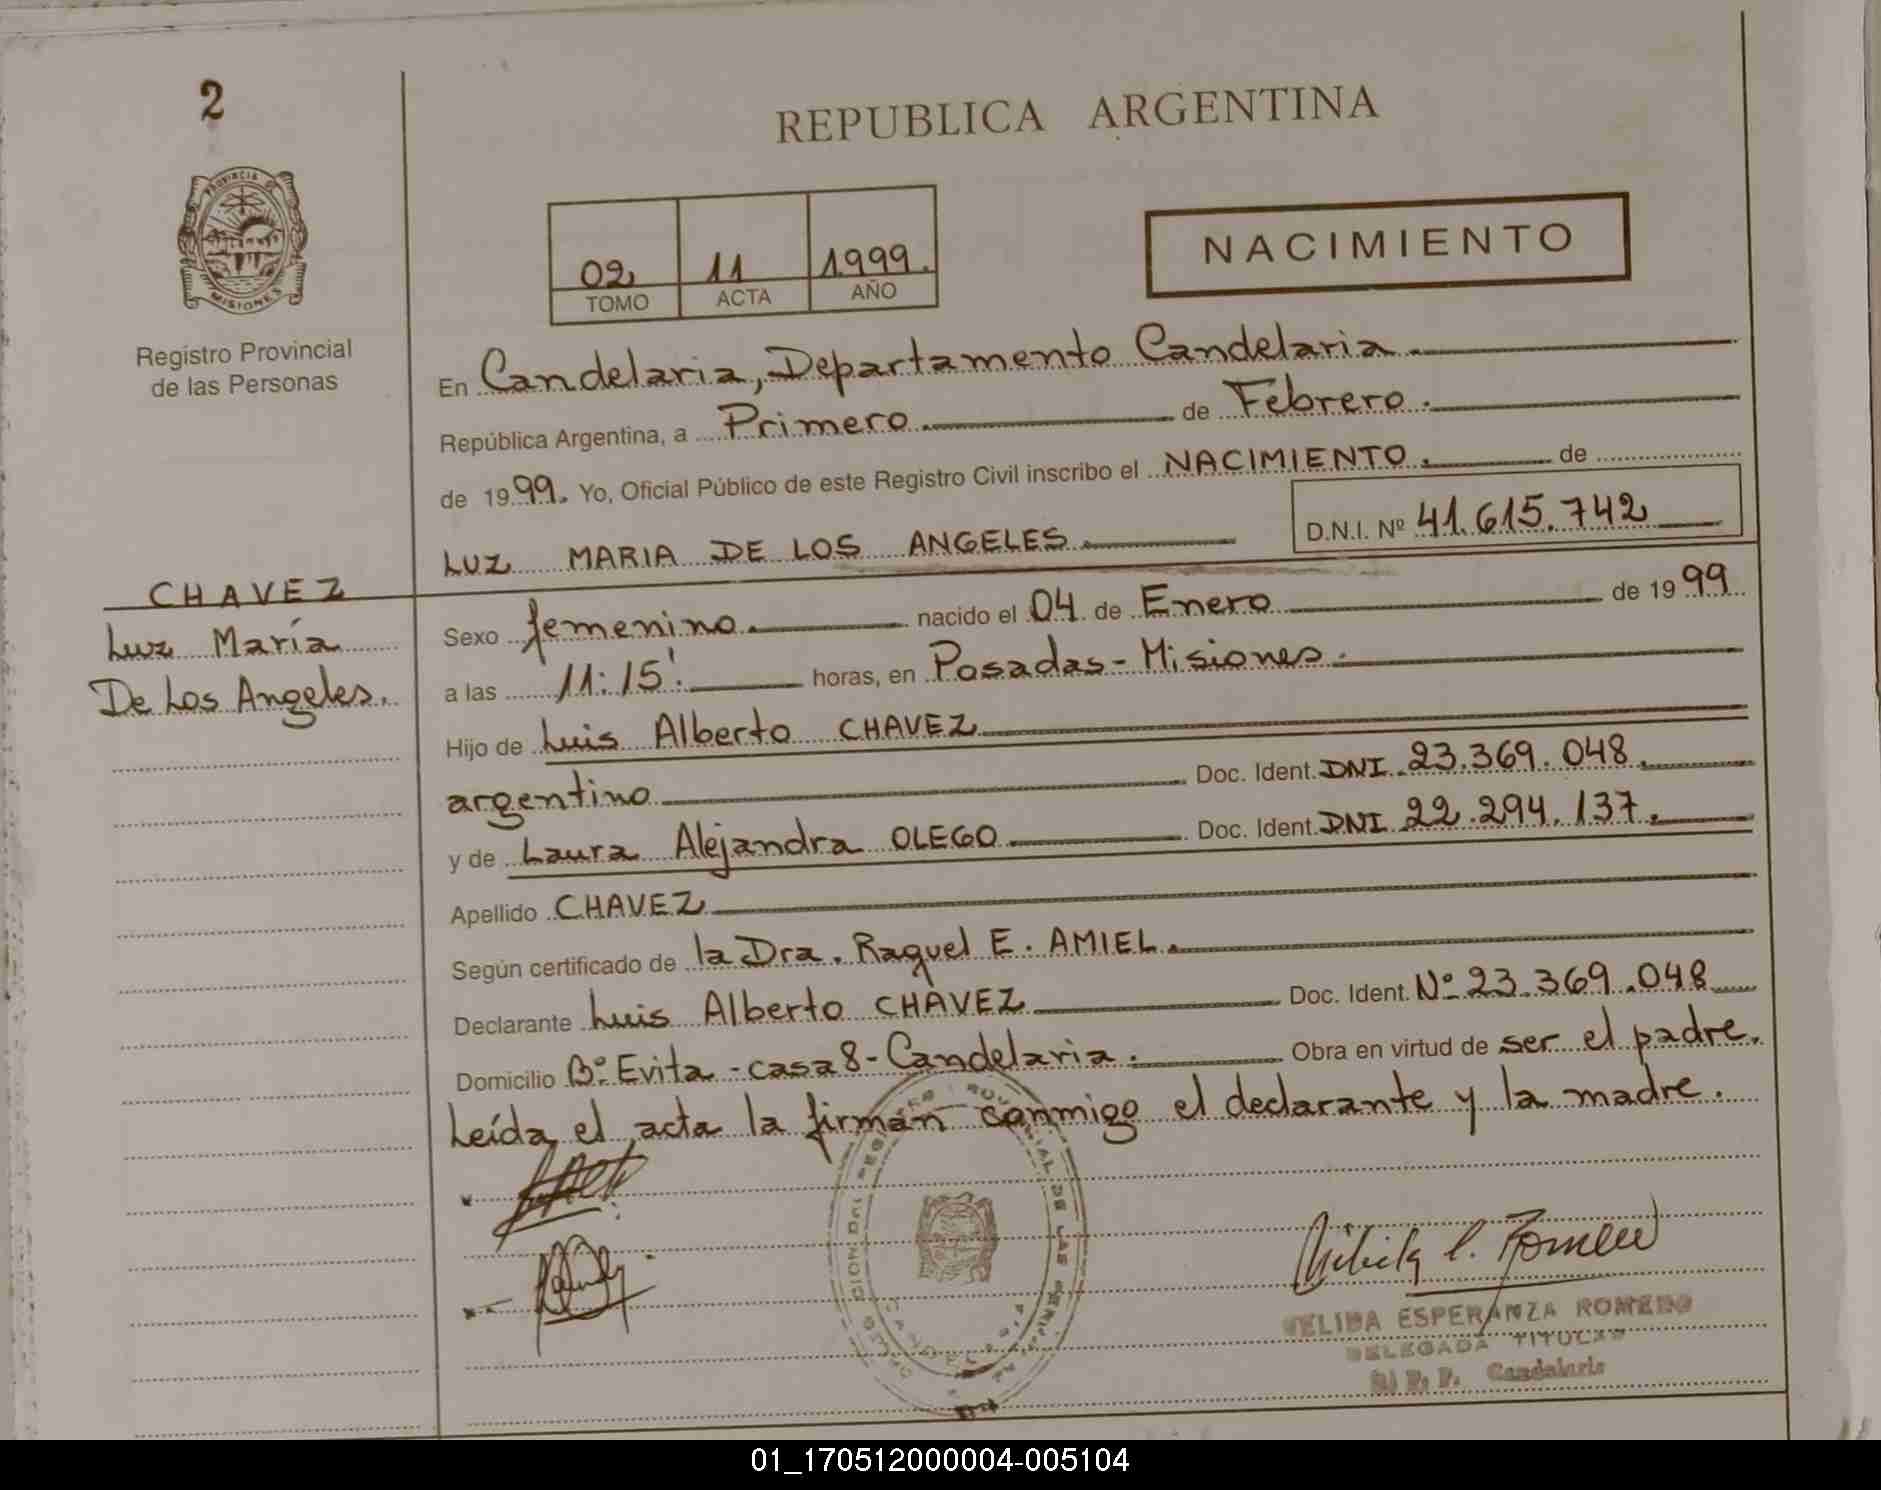 2
REPUBLICA ARGENTINA
PROVINCIA DE
MISIONES
Registro Provincial
de las Personas
02 11 1999.
TOMO ACTA AÑO
NACIMIENTO
En Candelaria, Departamento Candelaria.
República Argentina, a Primero. de Febrero.
de 1999. Yo, Oficial Público de este Registro Civil inscribo el NACIMIENTO. de
D.N.I. Nº 41.615.742
LUZ MARIA DE LOS ANGELES.
CHAVEZ
Luz María
De Los Angeles.
Sexo femenino. nacido el 04 de Enero de 1999
a las 11:15' horas, en Posadas - Misiones.
Hijo de Luis Alberto CHAVEZ
argentino Doc. Ident. DNI 23.369.048.
y de Laura Alejandra OLEGO Doc. Ident. DNI 22.294.137.
Apellido CHAVEZ
Según certificado de la Dra. Raquel E. AMIEL.
Declarante Luis Alberto CHAVEZ Doc. Ident. Nº 23.369.048
Domicilio Bº Evita - casa 8 - Candelaria. Obra en virtud de ser el padre.
Leída el acta la firmán conmigo el declarante y la madre.
ESPERANZA ROMERO
DELEGADA TITULAR
R. P. P. Candelaria
01_170512000004-005104